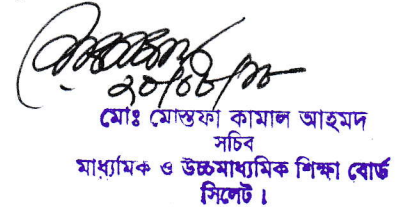 মোঃ মোস্তফা কামাল আহমদ
সচিব
মাধ্যমিক ও উচ্চমাধ্যমিক শিক্ষা বোর্ড
সিলেট।